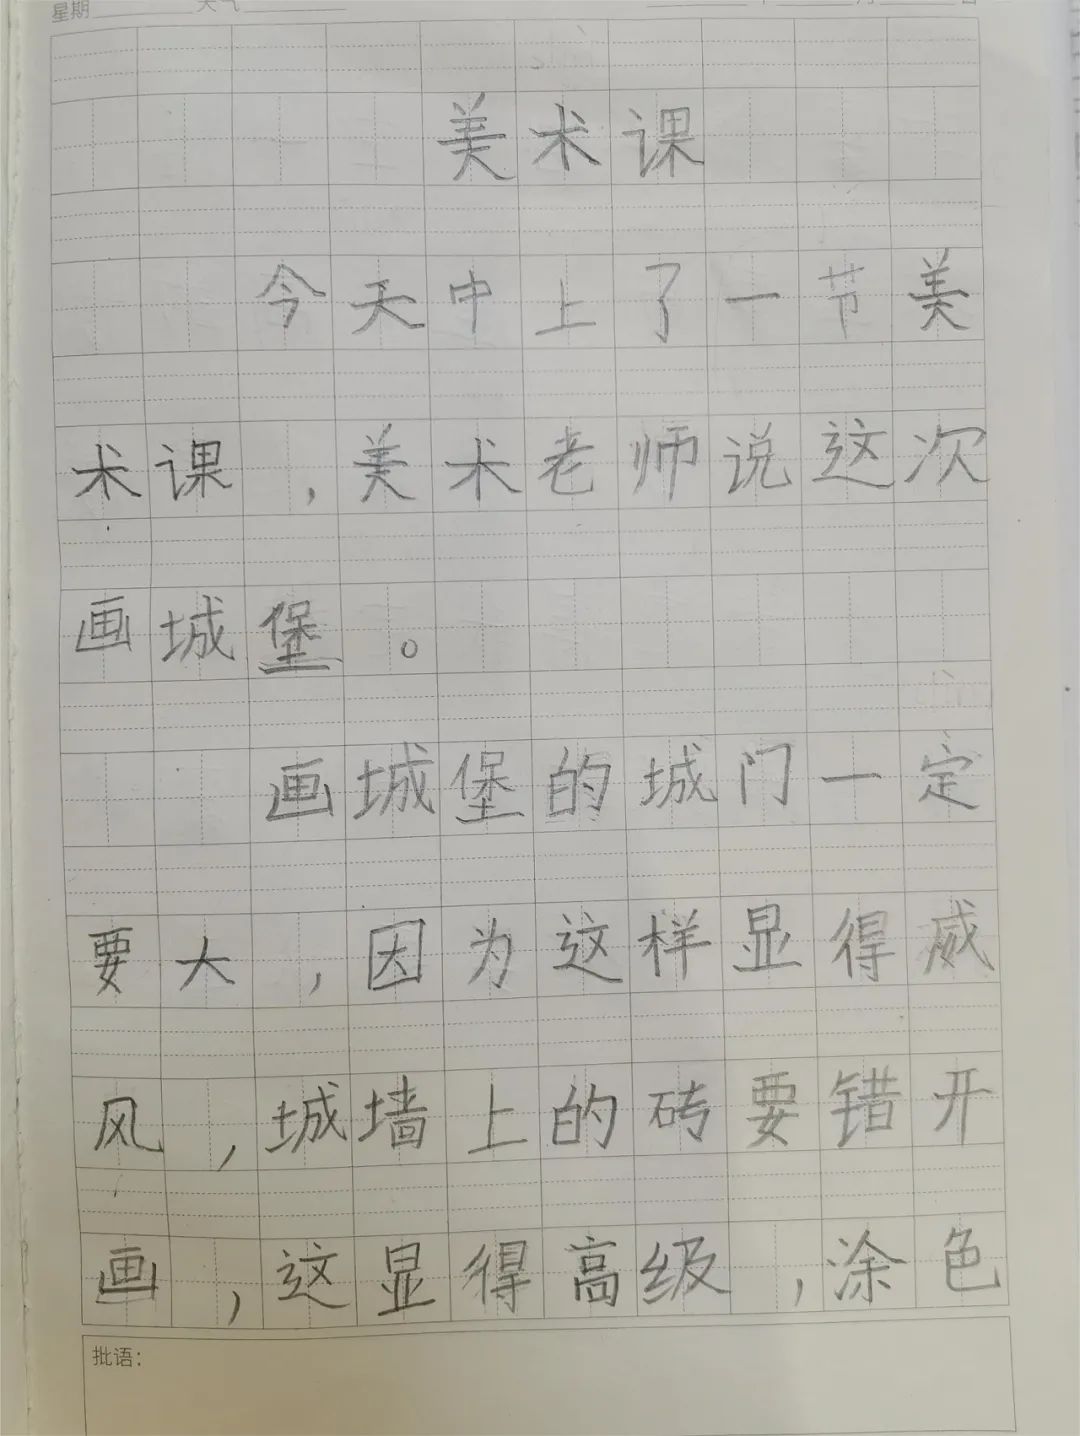 星期 天气
美术课
今天中上了一节美
术课，美术老师说这次
画城堡。
画城堡的城门一定
要大，因为这样显得威
风，城墙上的砖要错开
画，这显得高级，涂色
批语：